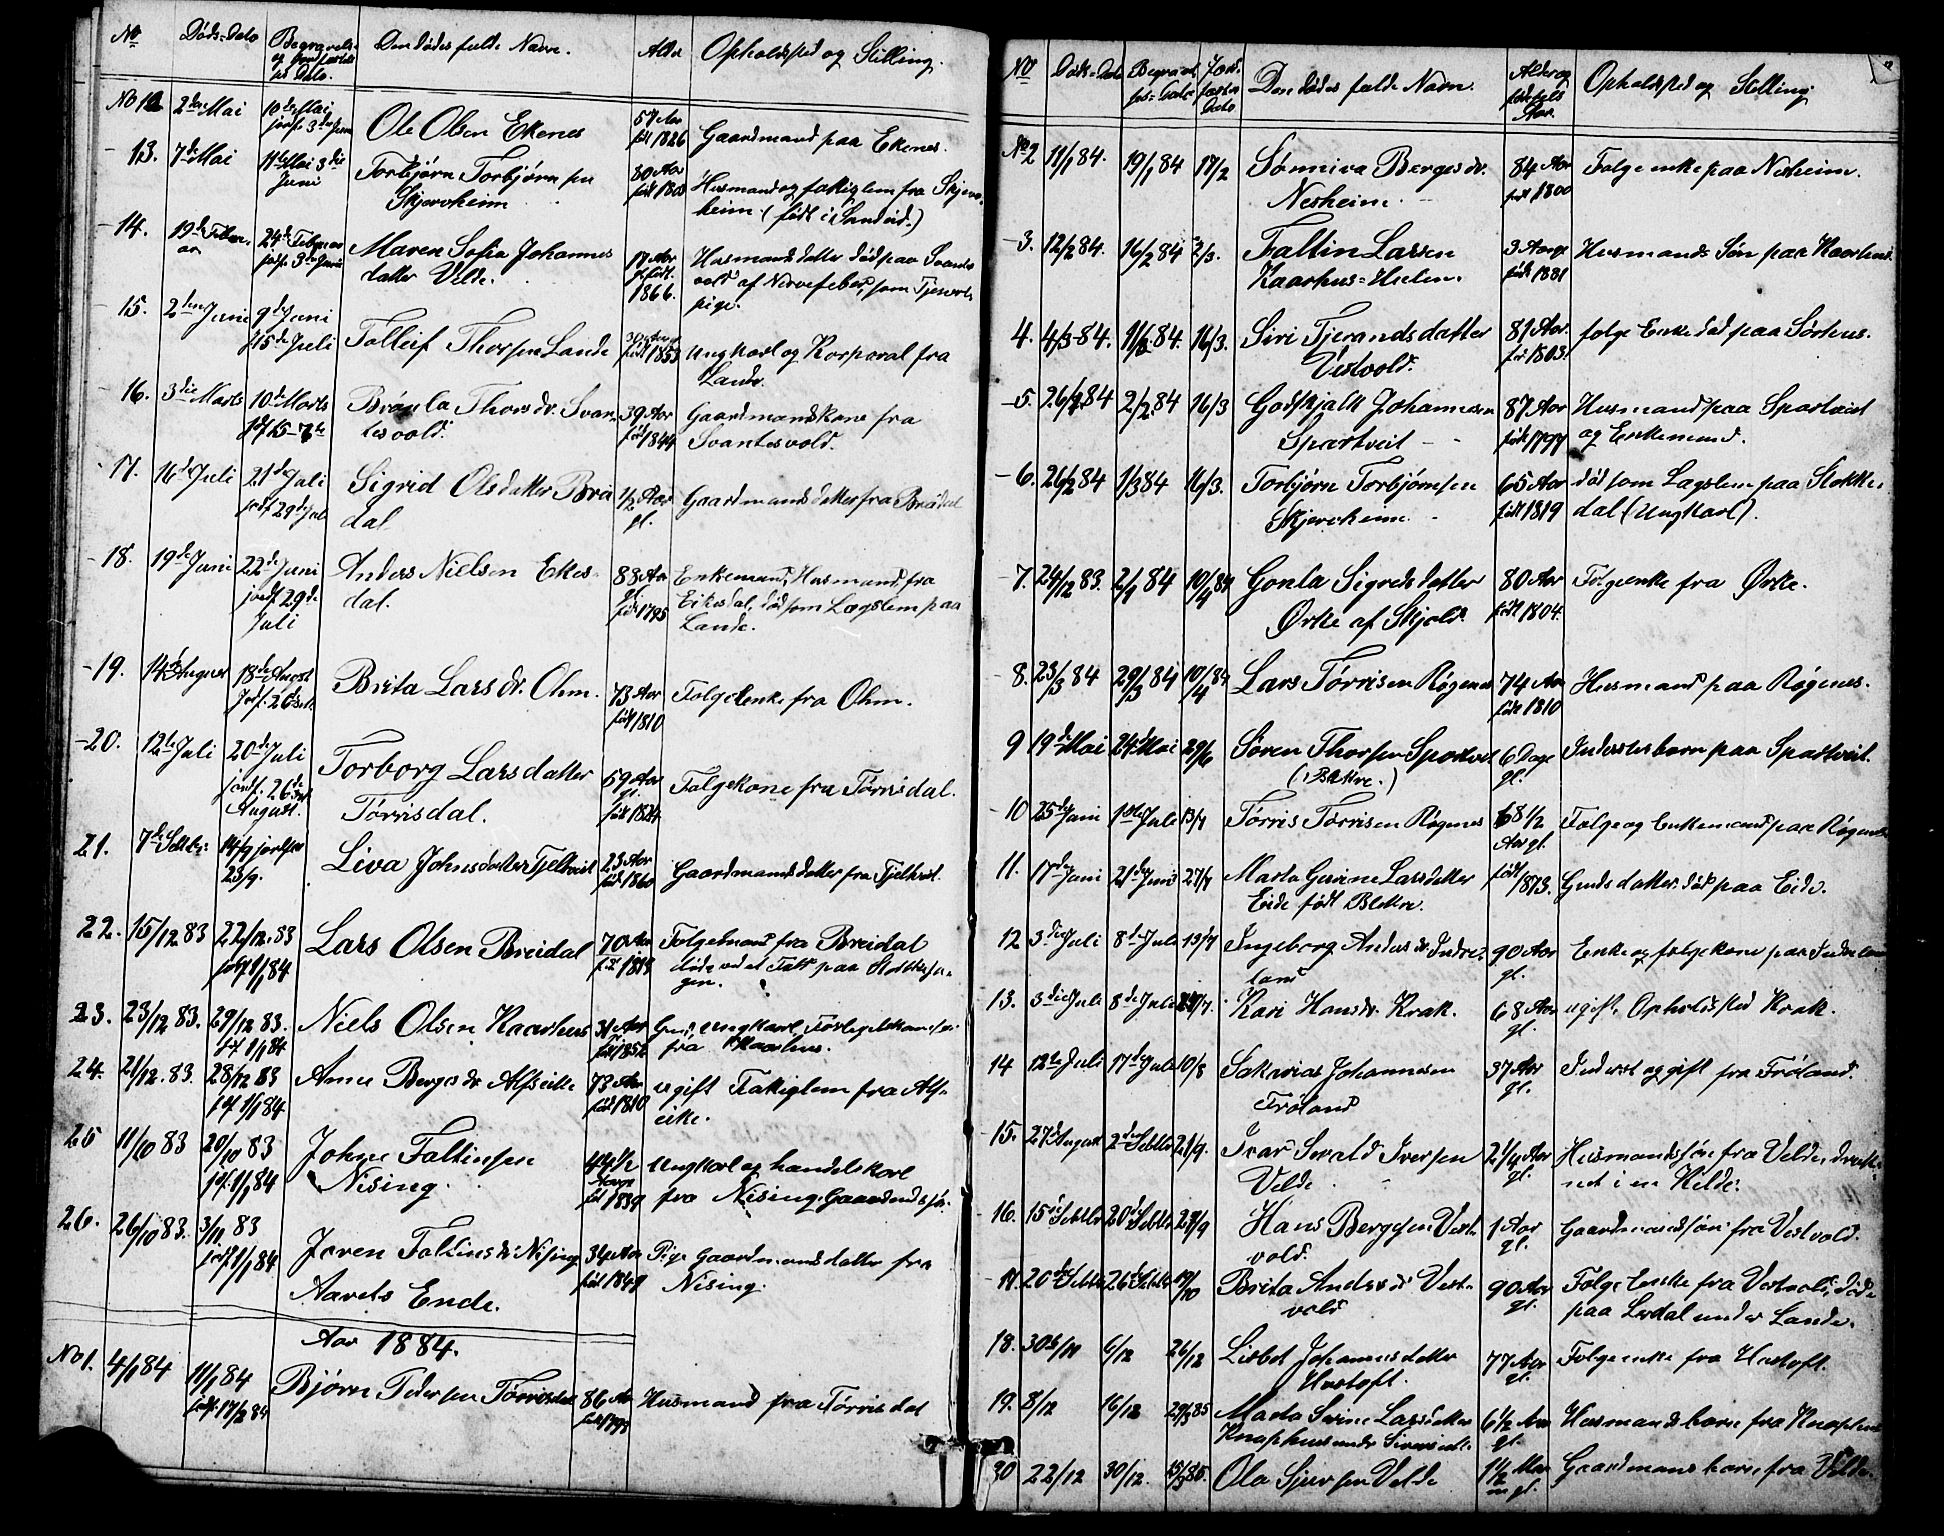 No Døds-Dato Begravels- og Jordfæstel- ses Dato. Den dødes fulde Navn. Alder Opholdssted og Stilling.
No 12 2den Mai 10de Mai jordf. 3die Juni Ole Olsen Ekenes 57 Aar født 1826 Gaardmand paa Ekenes.
13. 7de Mai 11te Mai 3die Juni Torbjørn Torbjørnsen Skjervheim 80 Aar født 1803 Husmand og fattiglem fra Skjervheim (født i Sandeid.)
14. 19de Februar 24de Februar jordf. 3die Juni Maren Sofia Johannesdatter Velde. 17 Aar født 1866. Husmandsdatter død paa Svantesvold af Nervefeber, som Tjenestepige.
15. 2den Juni 9de Juni 15de Juli Tolleif Thorsen Lande 30 Aar født 1853 Ungkarl og Korporal fra Lande.
16. 3die Marts 10de Marts jdf 15-7de Thorsdr. Svantesvold. 39 Aar født 1844 Gaardmandskone fra Svantesvold.
17. 16de Juli 21de Juli jordf 29de Juli Sigrid Olsdatter Breidal 1/2 Aar gl. Gaardmandsdatter fra Breidal
18. 19de Juni 22de Juni jordf. 29de Juli Anders Nielsen Ekesdal. 88 Aar gl. født 1795 Enkemand, Husmand fra Eikesdal, død som Lægslem paa Lande.
19. 14de August 18de August Jordf. 26de Brita Larsdr. Ohm. 73 Aar født 1810 Folgeenke fra Ohm.
20. 12te Juli 20de Juli jordf. 26de August. Torborg Larsdatter Tørrisdal. 59 Aar gl. født 1824 Folgekone fra Tørrisdal.
21. 7de Septbr. 14/9 jordfæstet 23/9. Liva Johnsdatter Fjellveit 23 Aar født 1860 Gaardmandsdatter fra Fjelltveit.
22. 15/12 83 22/12. 83 jdf 1/1 84 Lars Olsen Breidal 70 Aar født 1813 Folgemand fra Breidal døde ved et Fald paa
23. 23/12 83. 29/12 83. jdf 1/1 84 Niels Olsen Kaarhus 31 Aar født 1852 Ungkarl, fra Kaarhus.
24. 21/12. 83. 28/12 83 jdf 1/1 84 Anna Bergesdr Alfseike 73 Aar født 1810 ugift Fattiglem fra Alfseike.
25 11/10 83 20/10 83 jdf. 1/1 84 Johan Faltinsen Nising. 44 1/2 Aar født 1839 Ungkarl og handelskarl fra Nising. Gaardmandssøn.
26. 26/10 83. 3/11. 83 jordf 1/1 84 Joren Faltinsdr. Nising 34 Aar født 1849 Pige Gaardmandsdatter fra Nising.
Aarets Ende.
Aar 1884.
No 1. 4/1 84 11/1 84 jordf. 17/2 84 Bjørn Pedersen Tørrisdal 86 Aar Husmand fra Tørrisdal
No Døds-Dato Begravelses-Dato Jordfæstes Dato Den dødes fulde Navn. Alder og fødsels Aar. Opholdssted og Stilling
No 2 11/1 84. 19/1 84 17/2 Sønneva Bergesdr. Nesheim. 84 Aar født 1800 Folgeenke paa Nesheim.
3. 12/2 84. 16/2 84 2/3. Faltin Larsen Kaarhus-Hælen. 3 Aar født 1881 Husmands Søn paa Kaarhus.
4. 4/3-84. 11/3. 84. 16/3. Siri Tjerandsdatter Vestvold. 81 Aar. født 1803. folge Enke død paa Sørhus.
5. 26/2 84 2/2 84 16/3 Godskjalk Johannesen Spartveit 87 Aar født 1797 Husmand paa Spartveit og Enkemand.
6. 26/2 84 1/3 84 16/3. Torbjørn Torbjørnsen Skjerveheim. 65 Aar født 1819 død som Lægslem paa Stokkedal (Ungkarl).
7. 24/12 83. 2/1 84 10/4 84 Gonla Sigredsdatter Ørke af Skjold. 80 Aar født 1804. Folgeenke fra Ørke.
8. 23/3 84 29/3 84 10/4 84 Lars Tørrisen Røgenes 74 Aar født 1810 Husmand paa Røgenes.
9 19de Mai 24de Mai 29/6 Søren Thorsen Spartveit (Bekken.) 6 Dage gl. Inderstesbarn paa Spartveit.
10 25de Juni 1ste Juli 13/7 Tørris Tørrisen Røgenes 68 1/2 Aar gl. Folge og Enkemand paa Røgenes
11. 17de Juni 21de Juni 27/7 Marta Gurine Larsdatter Eide født Blekre. født 1873. Gaards datter død paa Eide.
12 3die Juli 8de Juli 13/7 Ingeborg Andersdr. Indreland 90 Aar gl. Enke og folgekone paa Indreland
13. 3die Juli 8de Juli Kari Hansdr. Krak. 68 Aar gl. ugift, Opholdssted Krak.
14 12te Juli 17de Juli 10/8 Sakarias Johannesen Frøland 37 Aar gl. Inderst og gift fra Frøland.
15. 27de August 2den Septbr 21/9. Ivar Sevald Iversen Velde 2 1/4 Aar gl. Husmandssøn fra Velde, druknet i en Kilde.
16. 15de Septbr 20de Septbr 28/9 Hans Bergesen Vestvold. 1 Aar gl. Gaardmandssøn fra Vestvold.
17. 20de Septbr 26de Septbr 19/10 Brita Andersdr Vestvold 90 Aar gl. Folge Enke fra Vestvold, døde paa Lerdal under Lande.
18. 30/11 6/12 26/12 Lisbet Johannesdatter Hustoft. 77 Aar gl. Folgeenke fra Hustoft.
19. 8/12 16/12 29/3 85 Marta Serine Larsdatter Knaphus 6 1/2 Aar gl. Husmandsbarn fra Knaphus
20 22/12 30/12. 15/3 85. Ola Sjursen Velde 14/2 gl. Gaardmansbarn fra Velde.